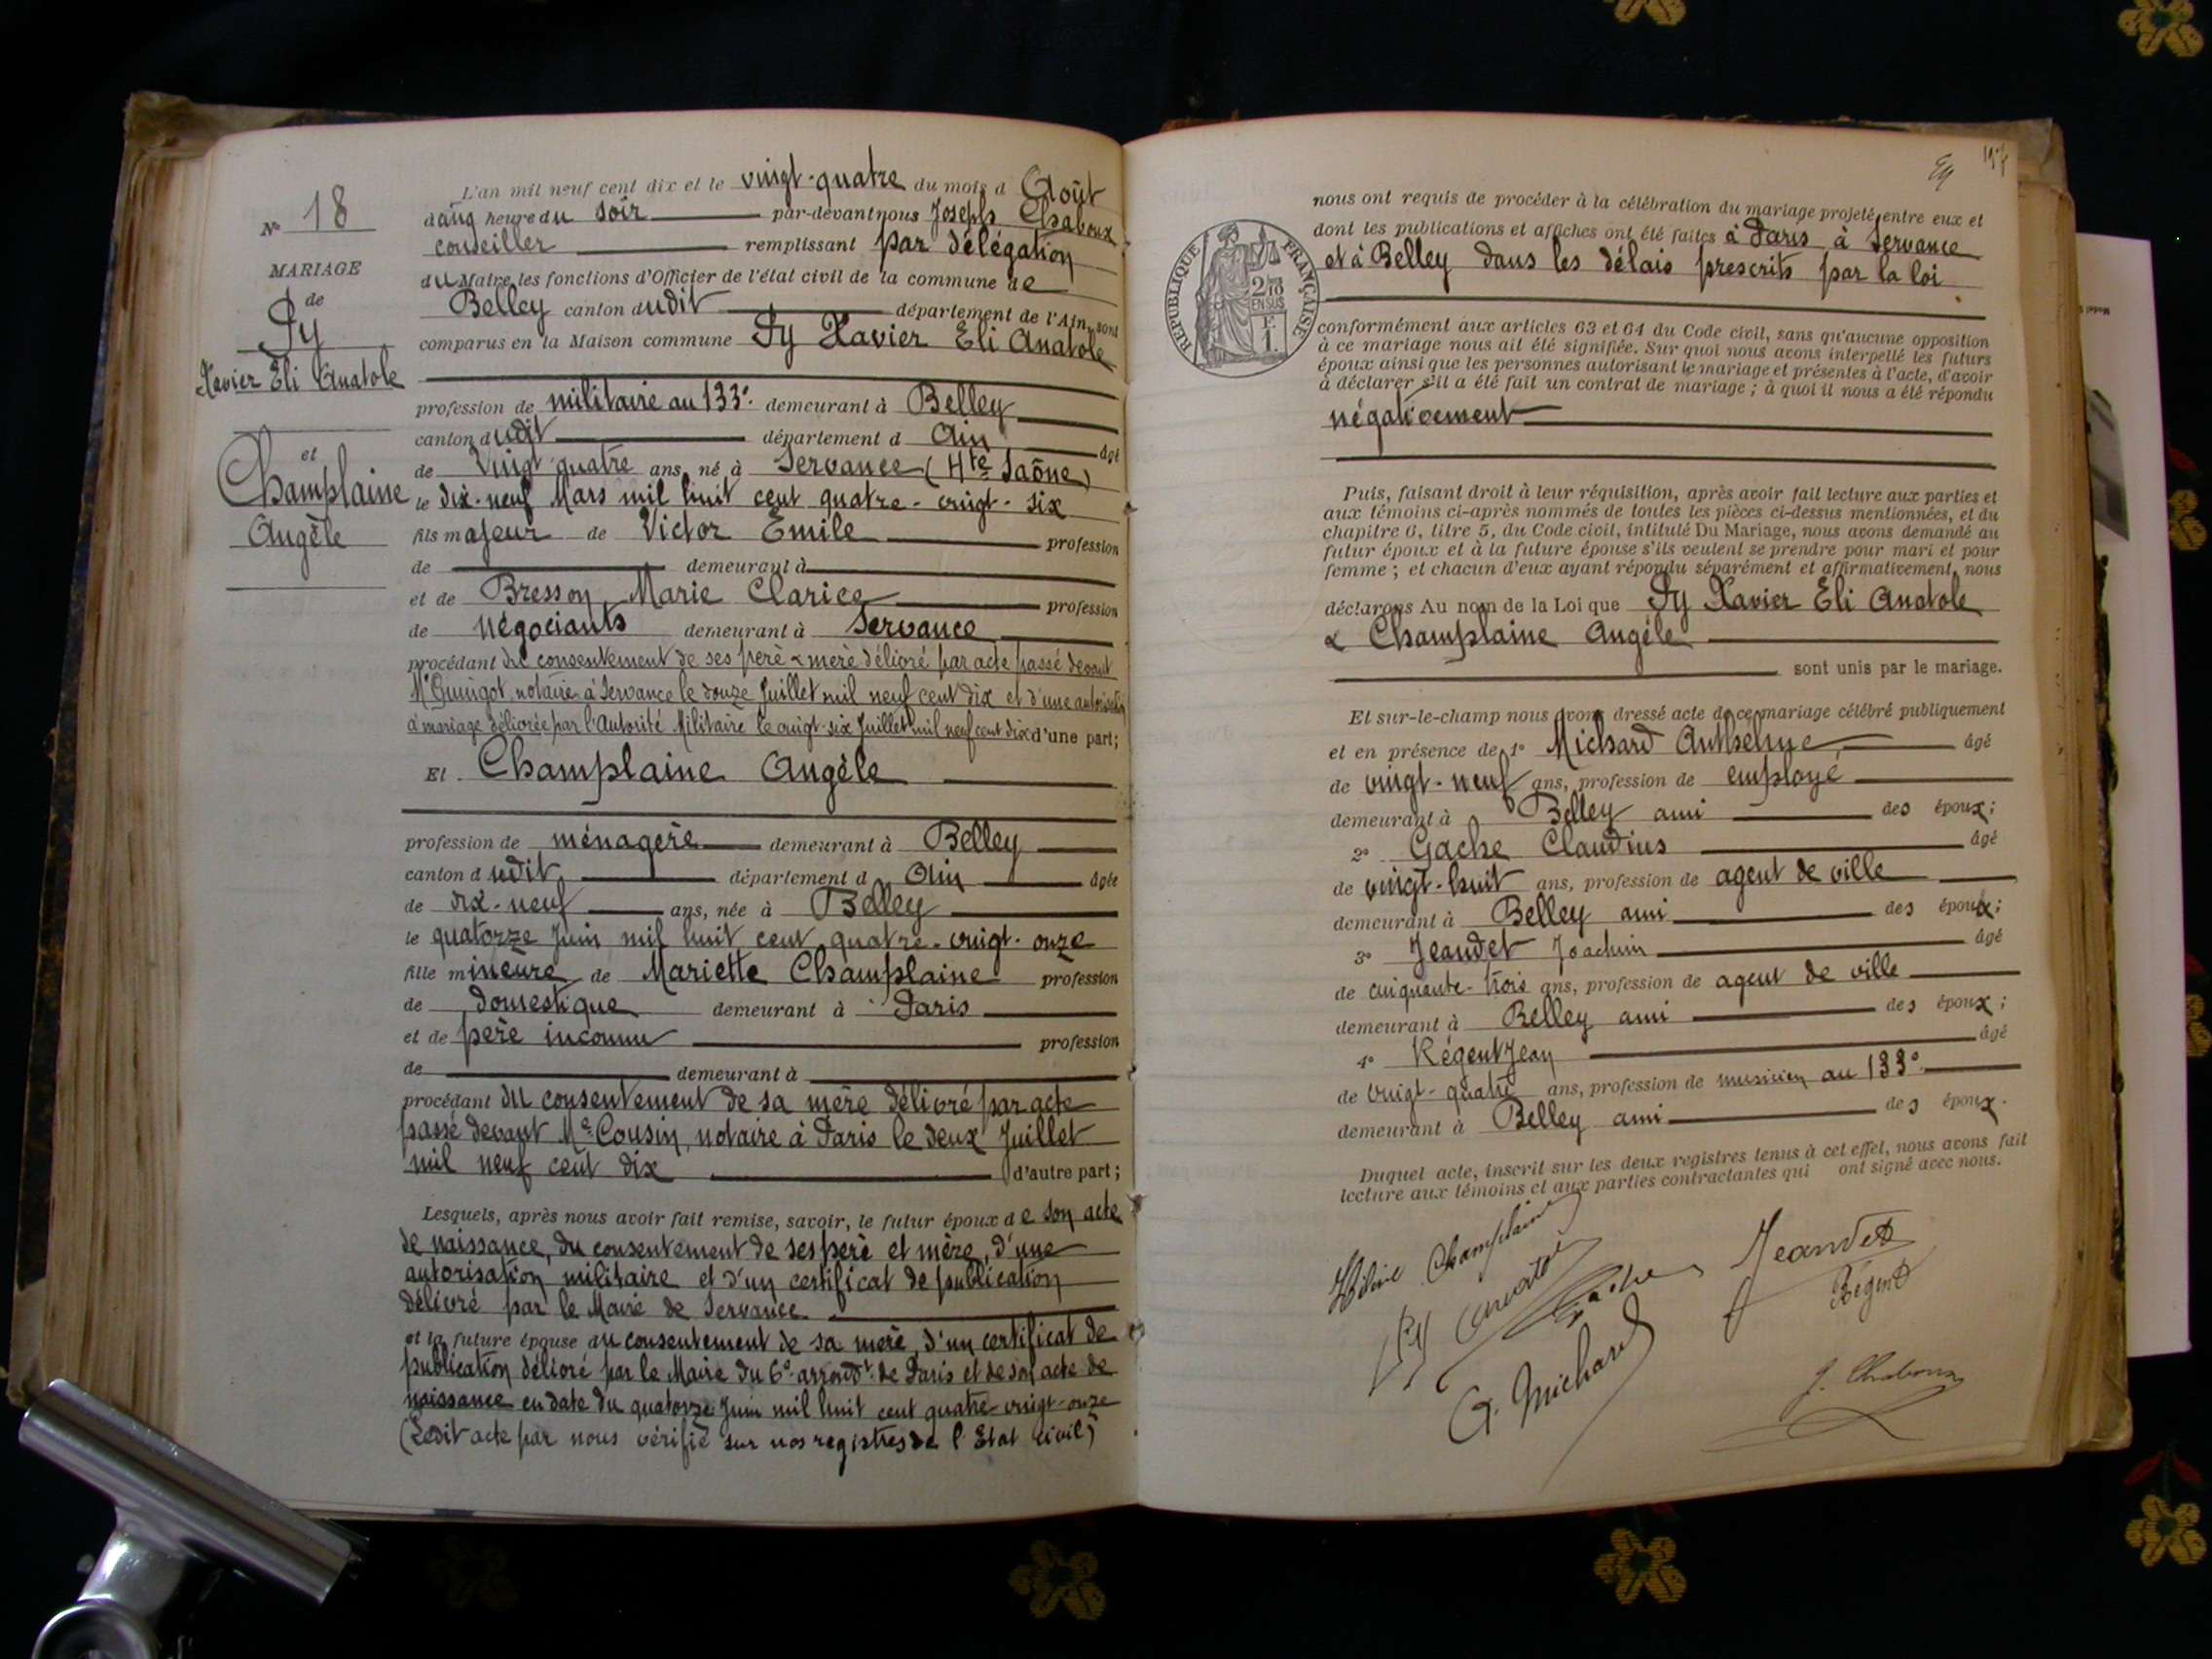 N° 18
MARIAGE
de
Py
Xavier Eli Anatole
et
Champlaine
Angèle
L'an mil neuf cent dix et le vingt-quatre du mois d Août
à cinq heure du soir par-devant nous Joseph Chaboux
conseiller remplissant par délégation
du Maire les fonctions d'Officier de l'état civil de la commune de
Belley canton dudit département de l'Ain, sont
comparus en la Maison commune Py Xavier Eli Anatole
profession de militaire au 133e demeurant à Belley
canton dudit département d Ain âgé
de vingt quatre ans, né à Servance (Hte Saône)
le dix-neuf Mars mil huit cent quatre-vingt-six
fils majeur de Victor Emile profession
de demeurant à
et de Bresson Marie Clarice profession
de négociants demeurant à Servance
procédant du consentement de ses père & mère délivré par acte passé devant
Me Guingot notaire à Servance le douze Juillet mil neuf cent dix et d'une autorisation
d mariage délivrée par l'Autorité Militaire le vingt-six Juillet mil neuf cent dix d'une part;
Et Champlaine Angèle
profession de ménagère demeurant à Belley
canton dudit département d Ain âgée
de dix-neuf ans, née à Belley
le quatorze Juin mil huit cent quatre-vingt-onze
fille mineure de Mariette Champlaine profession
de domestique demeurant à Paris
et de père inconnu profession
de demeurant à
procédant du consentement de sa mère délivré par acte
passé devant Me Cousin, notaire à Paris le deux Juillet
mil neuf cent dix d'autre part;
Lesquels, après nous avoir fait remise, savoir, le futur époux de son acte
de naissance, du consentement de ses père et mère, d'une
autorisation militaire et d'un certificat de publication
délivré par le Maire de Servance
et la future épouse du consentement de sa mère, d'un certificat de
publication délivré par le Maire du 6e arrondt de Paris et de son acte de
naissance en date du quatorze Juin mil huit cent quatre-vingt-onze
(Ledit acte par nous vérifié sur nos registres de l'Etat civil)
RÉPUBLIQUE FRANÇAISE
2/10 EN SUS
nous ont requis de procéder à la célébration du mariage projeté entre eux et
dont les publications et affiches ont été faites à Paris à Servance
et à Belley dans les délais prescrits par la loi
conformément aux articles 63 et 64 du Code civil, sans qu'aucune opposition
à ce mariage nous ait été signifiée. Sur quoi nous avons interpellé les futurs
époux ainsi que les personnes autorisant le mariage et présentes à l'acte, d'avoir
à déclarer s'il a été fait un contrat de mariage ; à quoi il nous a été répondu
négativement
Puis, faisant droit à leur réquisition, après avoir fait lecture aux parties et
aux témoins ci-après nommés de toutes les pièces ci-dessus mentionnées, et du
chapitre 6, titre 5, du Code civil, intitulé Du Mariage, nous avons demandé au
futur époux et à la future épouse s'ils veulent se prendre pour mari et pour
femme ; et chacun d'eux ayant répondu séparément et affirmativement, nous
déclarons Au nom de la Loi que Py Xavier Eli Anatole
& Champlaine Angèle
sont unis par le mariage.
Et sur-le-champ nous avons dressé acte de ce mariage célébré publiquement
et en présence de 1° Michard Anthelme âgé
de vingt-neuf ans, profession de employé
demeurant à Belley ami des époux;
2° Gache Claudius âgé
de vingt-huit ans, profession de agent de ville
demeurant à Belley ami des époux;
3° Jeandet Joachim âgé
de cinquante-trois ans, profession de agent de ville
demeurant à Belley ami des époux;
4° Régent Jean âgé
de vingt-quatre ans, profession de musicien au 133e
demeurant à Belley ami des époux.
Duquel acte, inscrit sur les deux registres tenus à cet effet, nous avons fait
lecture aux témoins et aux parties contractantes qui ont signé avec nous.
Champlaine
Py Anatole
Gache
Jeandet
Régent
A. Michard
J. Chaboux